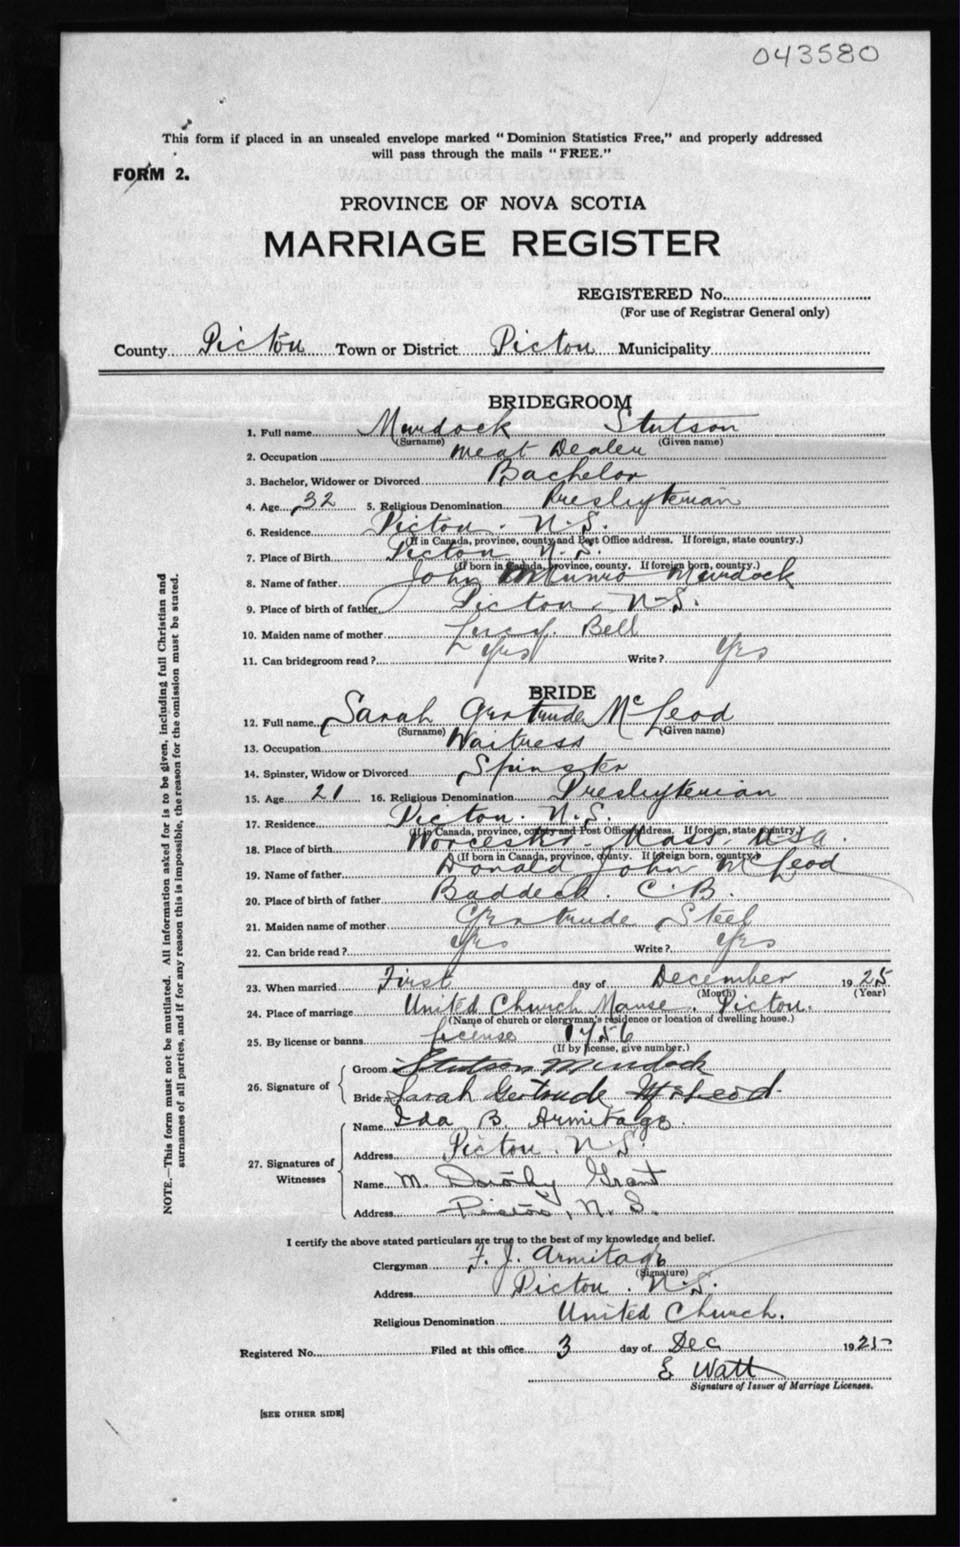 043580
This form if placed in an unsealed envelope marked "Dominion Statistics Free," and properly addressed
will pass through the mails "FREE."
FORM 2.
PROVINCE OF NOVA SCOTIA
MARRIAGE REGISTER
REGISTERED No.
(For use of Registrar General only)
County Pictou Town or District Pictou Municipality
BRIDEGROOM
1. Full name Murdock Stutson
(Surname) (Given name)
2. Occupation meat Dealer
3. Bachelor, Widower or Divorced Bachelor
4. Age 32 5. Religious Denomination Presbyterian
6. Residence Pictou. N.S.
(If in Canada, province, county and Post Office address. If foreign, state country.)
7. Place of Birth Pictou N.S.
(If born in Canada, province, county. If foreign born, country.)
8. Name of father John Munro Murdock
9. Place of birth of father Pictou, N.S.
10. Maiden name of mother Lucy. Bell
11. Can bridegroom read? Yes Write? Yes
BRIDE
12. Full name Sarah Gertrude McLeod
(Surname) (Given name)
13. Occupation Waitress
14. Spinster, Widow or Divorced Spinster
15. Age 21 16. Religious Denomination Presbyterian
17. Residence Pictou. N.S.
(If in Canada, province, county and Post Office address. If foreign, state country.)
18. Place of birth Worcester. Mass. U.S.A.
(If born in Canada, province, county. If foreign born, country.)
19. Name of father Donald John McLeod
20. Place of birth of father Baddeck. C.B.
21. Maiden name of mother Gertrude Steel
22. Can bride read? Yes Write? Yes
23. When married First day of December 1925
(Month) (Year)
24. Place of marriage United Church Manse. Pictou.
(Name of church or clergyman's residence or location of dwelling house.)
25. By license or banns license 1756
(If by license, give number.)
26. Signature of Groom Stutson Murdock
Bride Sarah Gertrude McLeod.
27. Signatures of Witnesses
Name Ida B. Armitage.
Address Pictou. N.S.
Name M. Dorothy Grant
Address Pictou, N.S.
I certify the above stated particulars are true to the best of my knowledge and belief.
Clergyman F. J. Armitage
(Signature)
Address Pictou. N.S.
Religious Denomination United Church.
Registered No. Filed at this office 3 day of Dec 1925
E Watt
Signature of Issuer of Marriage Licenses.
[SEE OTHER SIDE]
NOTE.—This form must not be mutilated. All information asked for is to be given, including full Christian and
surnames of all parties, and if for any reason this is impossible, the reason for the omission must be stated.